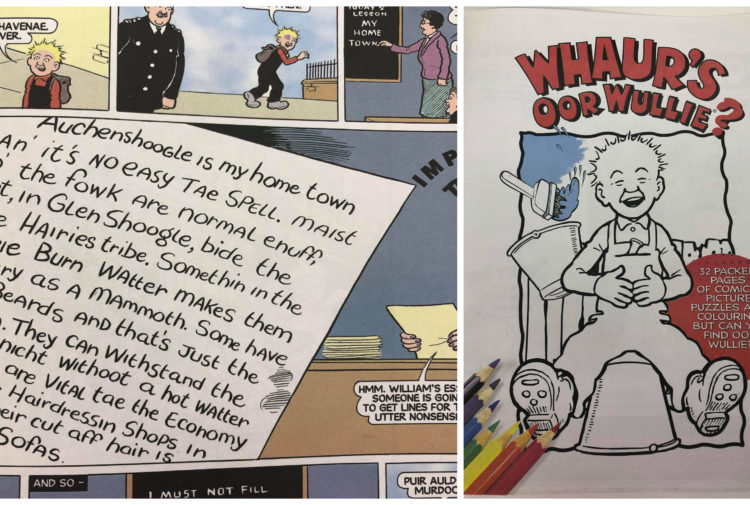 HAVENAE.
VER.
EN.
TODAY'S
LESSON
MY
HOME
TOWN.
Auchenshoogle is my home town
An' it's no easy tae spell. Maist
the fowk are normal enuff,
t, in Glen Shoogle, bide the
e Hairies tribe. Somethin in the
ue Burn Watter makes them
ry as a mammoth. Some have
Beards and that's just the
. They can withstand the
nicht withoot a hot watter
are vital tae the economy
Hairdressin Shops in
eir cut aff hair is
Sofas.
IMP
T
HMM. WILLIAM'S ES
SOMEONE IS GOIN
TO GET LINES FOR T
UTTER NONSENS
AND SO –
I MUST NOT FILL
PUIR AULD
MURDOC
WHAUR'S
OOR WULLIE?
32 PACKE
PAGES
OF COMIC
PICTURE
PUZZLES A
COLOURIN
BUT CAN Y
FIND OO
WULLIE?